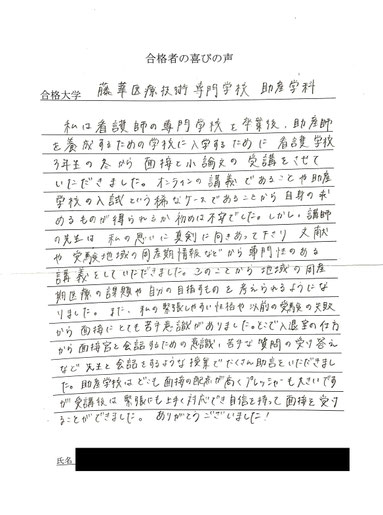 合格者の喜びの声
合格大学 藤華医療技術専門学校 助産学科
私は看護師の専門学校を卒業後、助産師
を養成するための学校に入学するために 看護学校
3年生の冬から 面接と小論文の 受講をさせて
いただきました。オンラインの講義であることや助産
学校の入試という稀なケースであることから自身の求
めるものが得られるか初めは不安でした。しかし、講師
の先生は 私の思いに真剣に向きあって下さり 文献
や 受験地域の周産期情報などから専門性のある
講義をしていただきました。このことから地域の周産
期医療の課題や自分の目指すものを考えられるようにな
りました。また、私の緊張しやすい性格や以前の受験の失敗
から面接にとても苦手意識がありました。そこで入退室の仕方
から面接官と会話するための意識、苦手な質問の受け答え
など 先生と会話をするような授業でたくさん助言をいただきまし
た。助産学校はどこも面接の配点が高くプレッシャーも大きいです
が受講後は緊張にも上手く対応でき自信を持って面接を受け
ることができました。ありがとうございました!
氏名